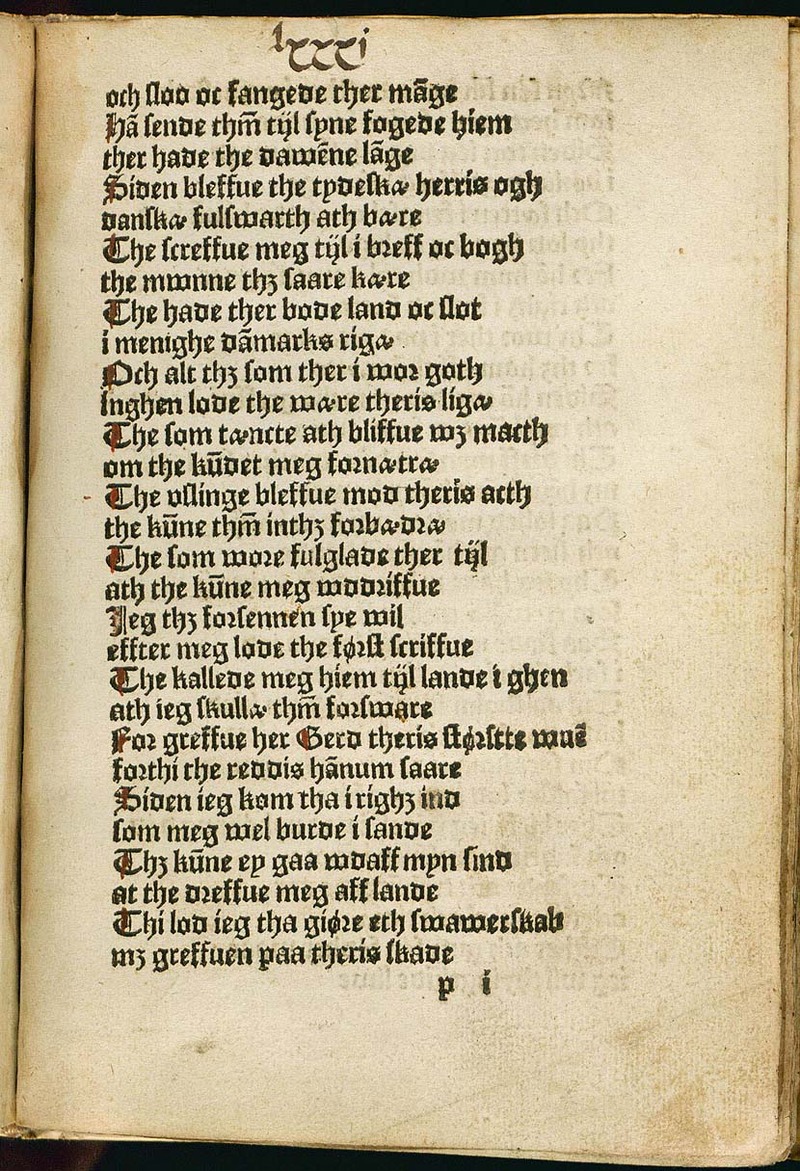 lxxxi
och slod oc fangede ther mãge
Hã sende thm̃ tijl syne fogede hiem
ther hade the dawẽne lãge
Siden bleffue the tydeskæ herris ogh
danskæ fulswarth ath bære
The screffue meg tijl i breff oc bogh
the mwnne thꝫ saare kære
The hade ther bode land oc slot
i menighe dãmarks rigæ
Och alt thꝫ som ther i wor goth
inghen lode the wære theris ligæ
The som tæncte ath bliffue wꝫ macth
om the kũdet meg fornætræ
The vslinge bleffue mod theris acth
the kũne thm̃ inthꝫ forbædræ
The som wore fulglade ther tijl
ath the kũne meg wddriffue
Jeg thꝫ forsennen sye wil
effter meg lode the først scriffue
The kallede meg hiem tijl lande i ghen
ath ieg skullæ thm̃ forsware
For greffue her Gerd theris størstte wuẽ
forthi the reddis hãnum saare
Siden ieg kom tha i righꝫ ind
som meg wel burde i sande
Thꝫ kũne ey gaa wdaff myn sind
at the dreffue meg aff lande
Thi lod ieg tha giøre eth swawerskab
mꝫ greffuen paa theris skade
p i